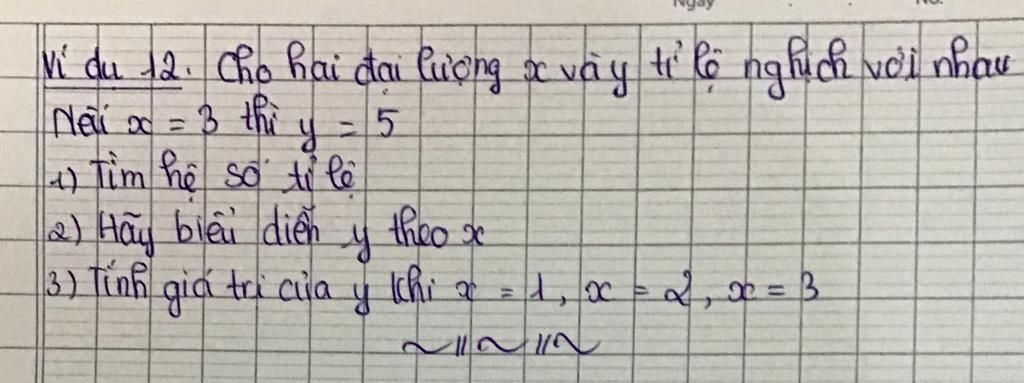 Ngày No.
Ví dụ 12. Cho hai đại lượng x và y tỉ lệ nghịch với nhau
Nếu x = 3 thì y = 5
1) Tìm hệ số tỉ lệ
2) Hãy biểu diễn y theo x
3) Tính giá trị của y khi x = 1, x = 2, x = 3